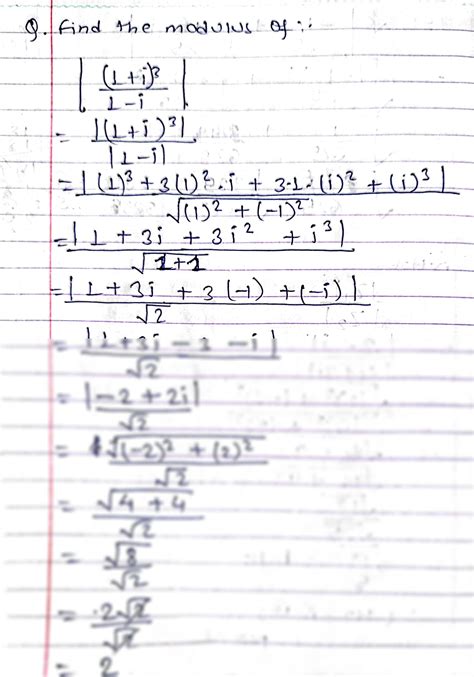 Q. Find the modulus of ::
| (1+i)³ / 1-i |
= |(1+i)³| / |1-i|
= |(1)³ + 3(1)².i + 3·1·(i)² + (i)³| / √(1)² + (-1)²
= |1 + 3i + 3i² + i³| / √1+1
= |1 + 3i + 3(-1) + (-i)| / √2
= |1+3i - 3 - i| / √2
= |-2 + 2i| / √2
= √(-2)² + (2)² / √2
= √4 + 4 / √2
= √8 / √2
= 2√2 / √2
= 2